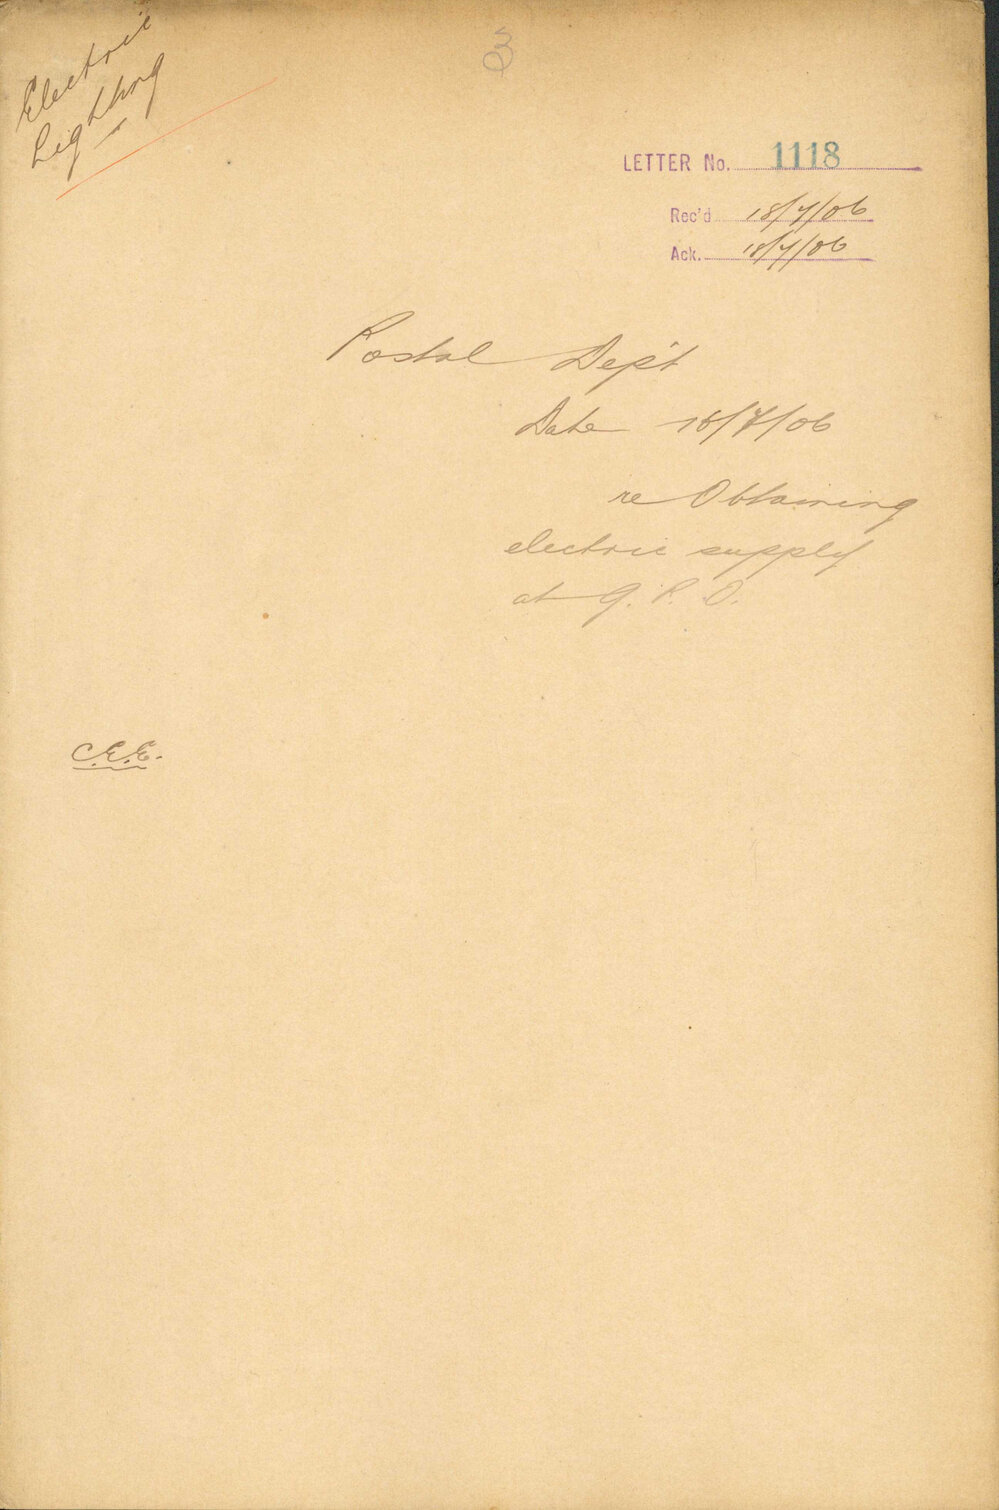 Electric
Lighting
3
LETTER No. 1118
Rec'd 18/7/06
Ack. 18/7/06
Postal Dep't
Date 16/7/06
re Obtaining
electric supply
at G. P. O.
C.E.E.